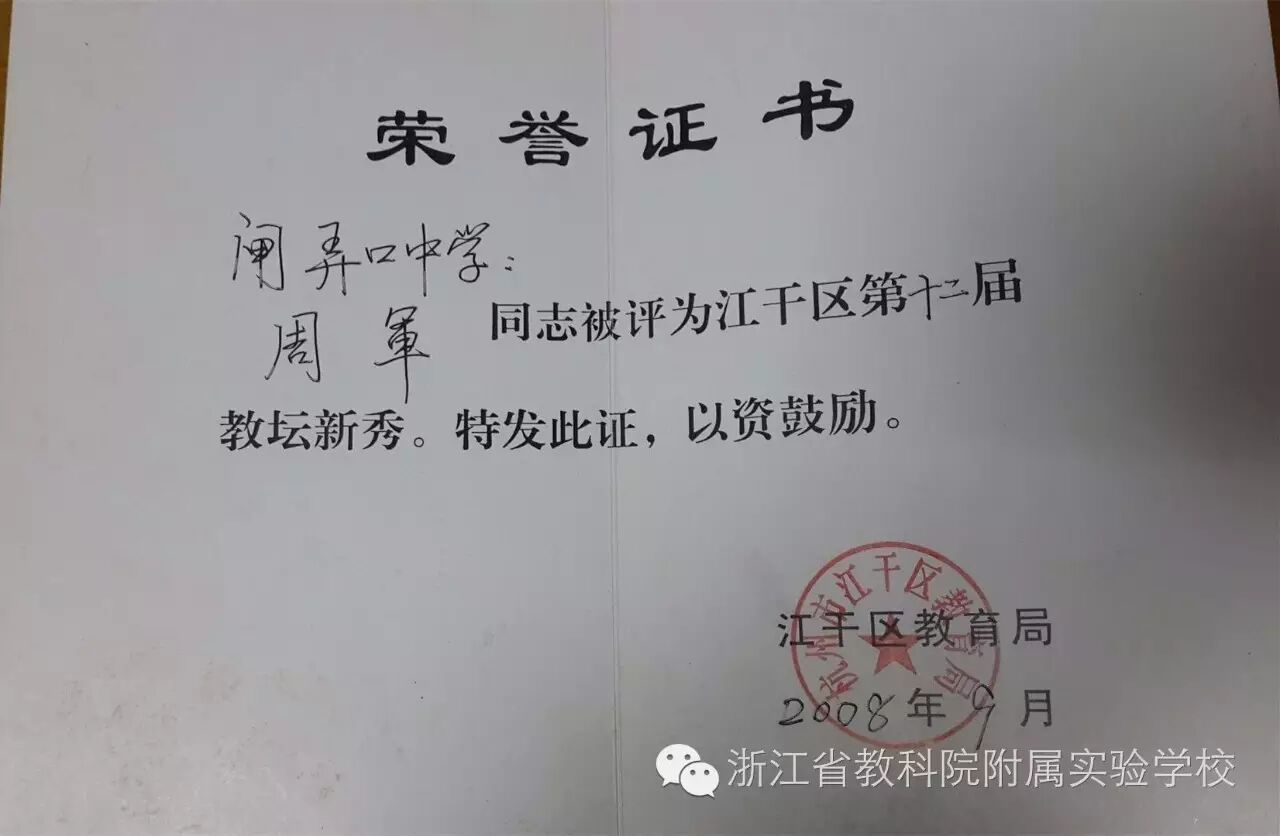 荣誉证书
闸弄口中学：
周军 同志被评为江干区第十二届
教坛新秀。特发此证，以资鼓励。
杭州市江干区教育局
江干区教育局
2008年9月
浙江省教科院附属实验学校